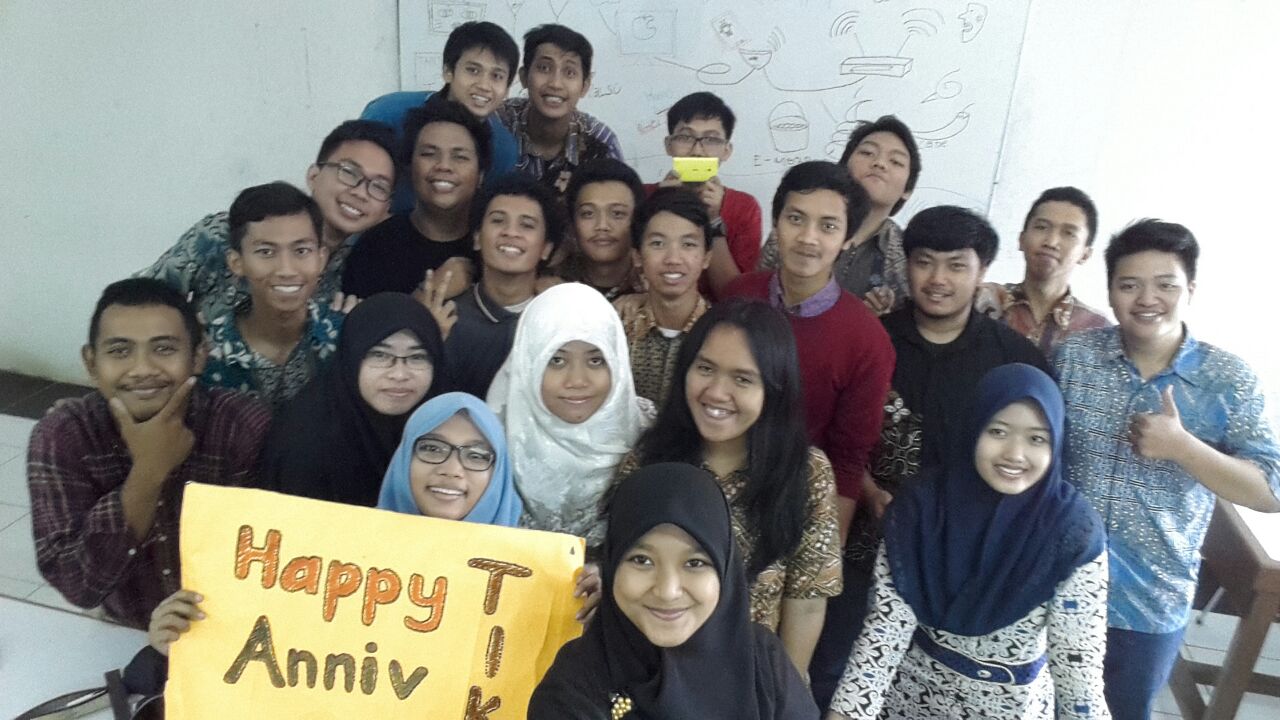 Happy
Anniv
TIK